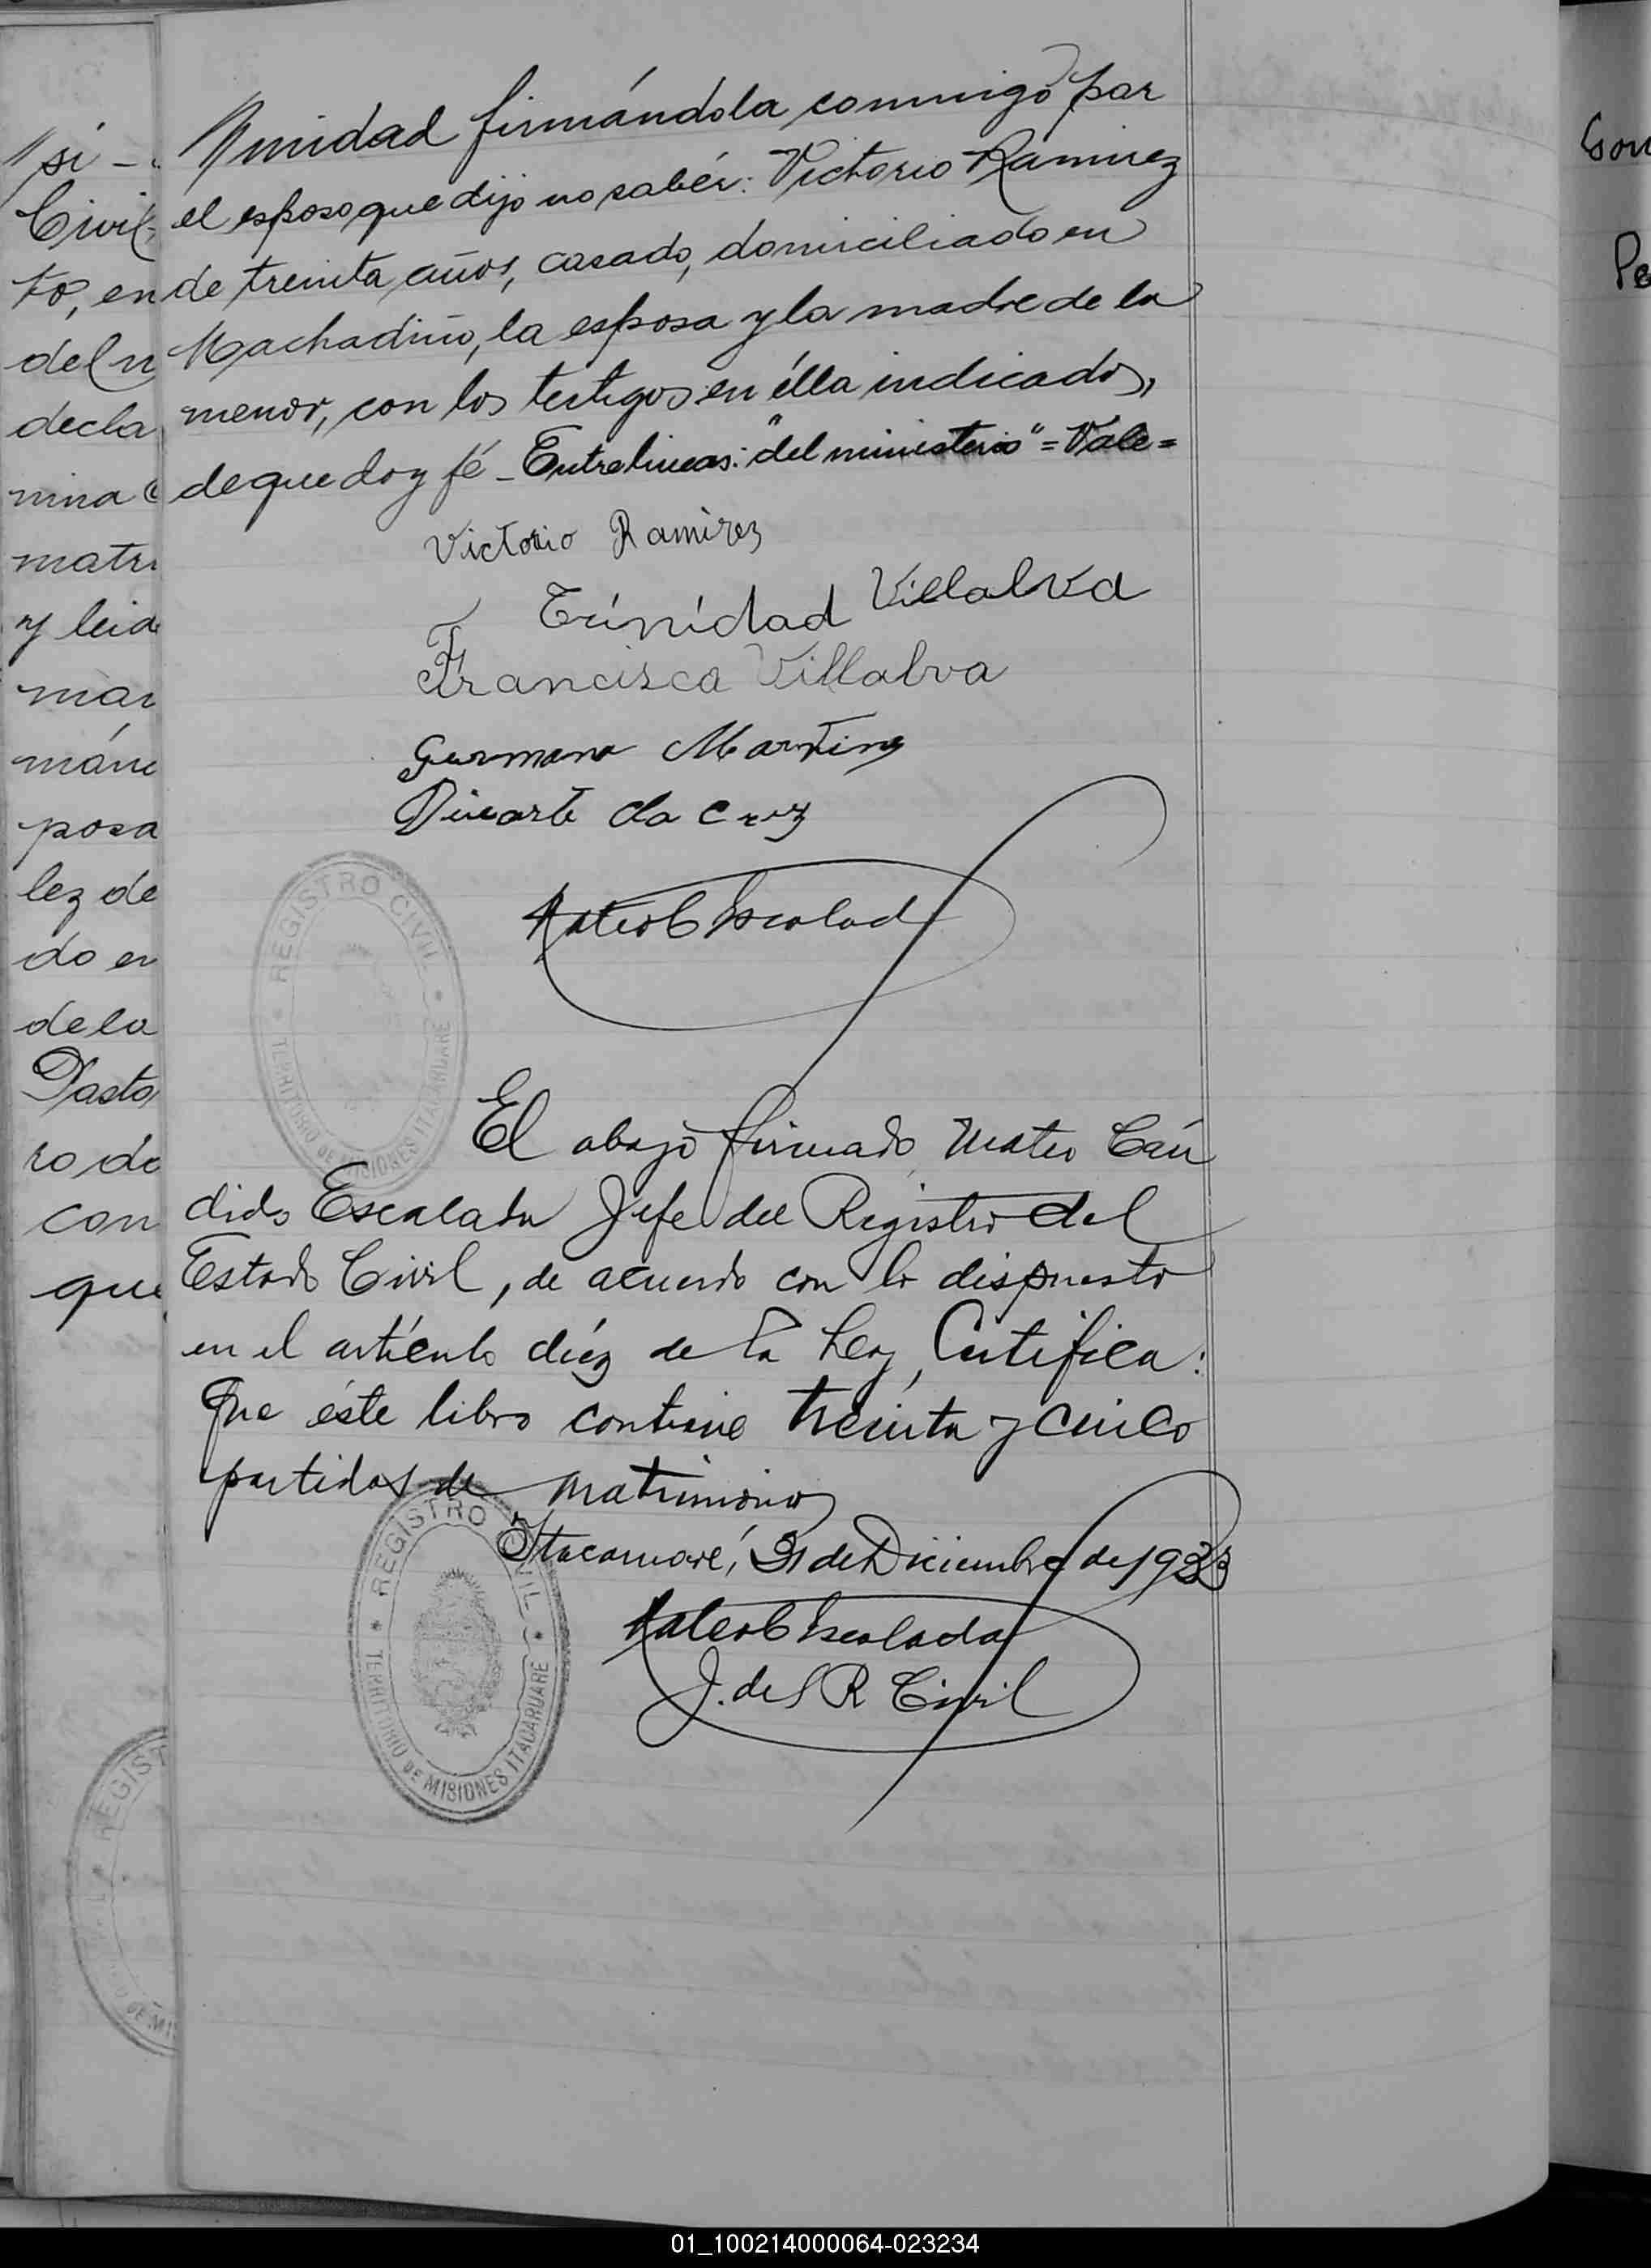 si -
Civil
to, en
del n
decla
nina
matri
y leid
mar
máne
posa
lez de
do en
de la
Pasto
ro de
con
que
firmándola conmigo por
el esposo que dijo no sabér: Victorio Ramirez
de treinta años, casado, domiciliado en
Machadiño, la esposa y la madre de la
menor, con los testigos en élla indicados,
de que doy fé - Entrelineas: "del ministerio" = Vale =
Victorio Ramirez
Trinidad Villalva
Francisca Villalva
Germano Martins
da Cruz
Mateo C Escalada
REGISTRO CIVIL
TERRITORIO DE MISIONES ITACARUARE
El abajo firmado, Mateo Cán
dido Escalada Jefe del Registro del
Estado Civil, de acuerdo con lo dispuesto
en el artículo diéz de la Ley, Certifica:
Que éste libro contiene treinta y cinco
partidas de matrimonio
Itacaruaré, 31 de Diciembre de 1933
Mateo C Escalada
J. del R Civil
REGISTRO CIVIL
TERRITORIO DE MISIONES ITACARUARE
REGIST
DE MI
Gon
Pe
01_100214000064-023234